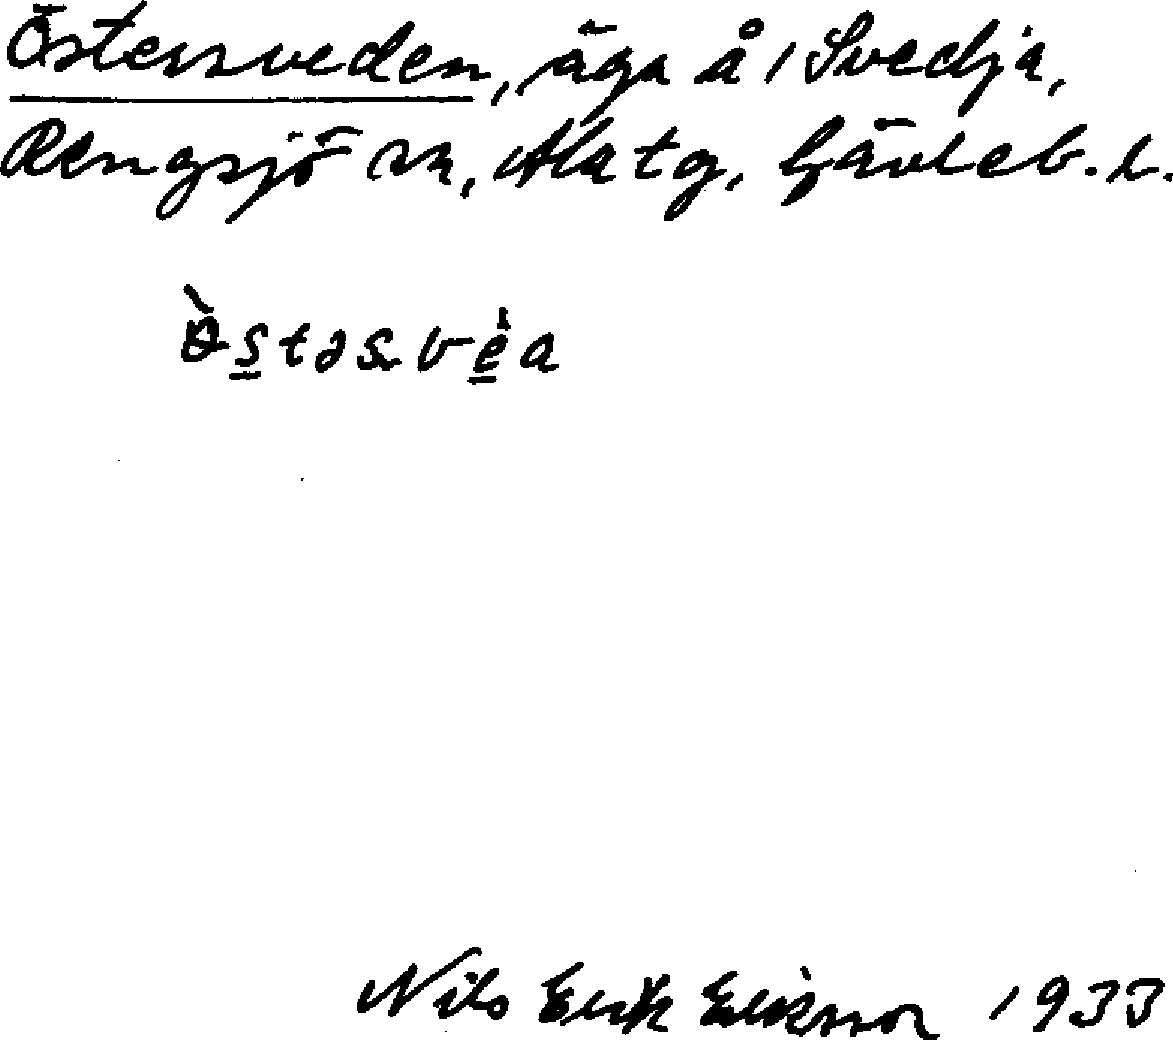 Östersveden, äga å, Svedja,
Rengsjö sn, Ala tg, Gävleb. l.
ɵ̀s̲təsvè̲a
Nils Erik Eriksson 1933